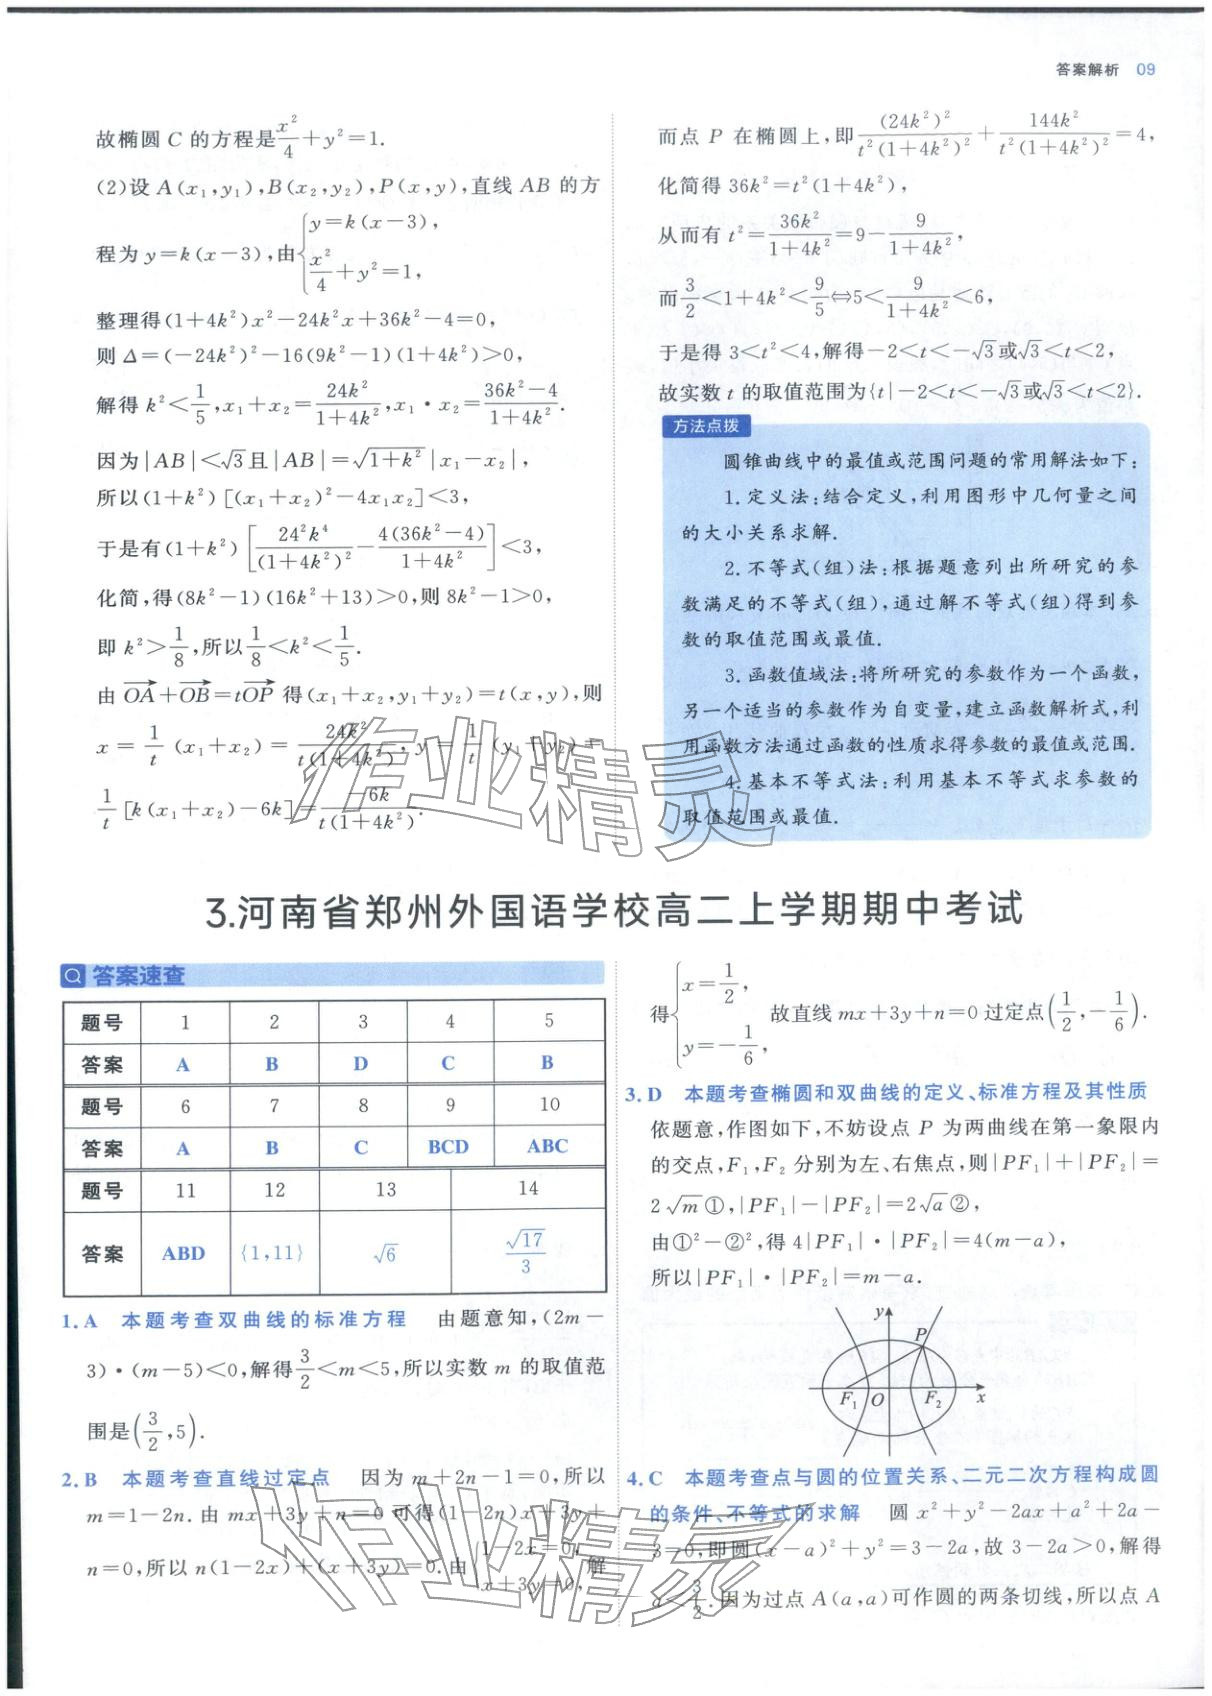 答案解析 09
故椭圆 C 的方程是x²/4+y²=1.
(2)设 A(x₁,y₁),B(x₂,y₂),P(x,y),直线 AB 的方
程为 y=k(x-3),由{y=k(x-3), x²/4+y²=1,
整理得(1+4k²)x²-24k²x+36k²-4=0,
则 Δ=(-24k²)²-16(9k²-1)(1+4k²)>0,
解得 k²<1/5,x₁+x₂=24k²/(1+4k²),x₁·x₂=(36k²-4)/(1+4k²).
因为|AB|<√3且|AB|=√(1+k²)|x₁-x₂|,
所以(1+k²)[(x₁+x₂)²-4x₁x₂]<3,
于是有(1+k²)[24²k⁴/(1+4k²)²-4(36k²-4)/(1+4k²)]<3,
化简,得(8k²-1)(16k²+13)>0,则 8k²-1>0,
即 k²>1/8,所以1/8<k²<1/5.
由 OA→+OB→=tOP→ 得(x₁+x₂,y₁+y₂)=t(x,y),则
x=1/t(x₁+x₂)=24k²/(t(1+4k²)),y=1/t(y₁+y₂)=
1/t[k(x₁+x₂)-6k]=-6k/(t(1+4k²)).
而点 P 在椭圆上,即(24k²)²/(t²(1+4k²)²)+144k²/(t²(1+4k²)²)=4,
化简得 36k²=t²(1+4k²),
从而有 t²=36k²/(1+4k²)=9-9/(1+4k²),
而3/2<1+4k²<9/5⇔5<9/(1+4k²)<6,
于是得 3<t²<4,解得-2<t<-√3或√3<t<2,
故实数 t 的取值范围为{t|-2<t<-√3或√3<t<2}.
方法点拨
圆锥曲线中的最值或范围问题的常用解法如下:
1.定义法:结合定义,利用图形中几何量之间
的大小关系求解.
2.不等式(组)法:根据题意列出所研究的参
数满足的不等式(组),通过解不等式(组)得到参
数的取值范围或最值.
3.函数值域法:将所研究的参数作为一个函数,
另一个适当的参数作为自变量,建立函数解析式,利
用函数方法通过函数的性质求得参数的最值或范围.
4.基本不等式法:利用基本不等式求参数的
取值范围或最值.
作业精灵
3.河南省郑州外国语学校高二上学期期中考试
答案速查
题号 1 2 3 4 5
答案 A B D C B
题号 6 7 8 9 10
答案 A B C BCD ABC
题号 11 12 13 14
答案 ABD {1,11} √6 √17/3
1.A 本题考查双曲线的标准方程 由题意知,(2m-
3)·(m-5)<0,解得3/2<m<5,所以实数 m 的取值范
围是(3/2,5).
2.B 本题考查直线过定点 因为 m+2n-1=0,所以
m=1-2n.由 mx+3y+n=0 可得(1-2n)x+3y+
n=0,所以 n(1-2x)+(x+3y)=0.由{1-2x=0, x+3y=0,解
得{x=1/2, y=-1/6, 故直线 mx+3y+n=0 过定点(1/2,-1/6).
3.D 本题考查椭圆和双曲线的定义、标准方程及其性质
依题意,作图如下,不妨设点 P 为两曲线在第一象限内
的交点,F₁,F₂ 分别为左、右焦点,则|PF₁|+|PF₂|=
2√m①,|PF₁|-|PF₂|=2√a②,
由①²-②²,得 4|PF₁|·|PF₂|=4(m-a),
所以|PF₁|·|PF₂|=m-a.
y
P
F₁ O F₂ x
4.C 本题考查点与圆的位置关系、二元二次方程构成圆
的条件、不等式的求解 圆 x²+y²-2ax+a²+2a-
3=0,即圆(x-a)²+y²=3-2a,故 3-2a>0,解得
a<3/2.因为过点 A(a,a)可作圆的两条切线,所以点 A
作业精灵